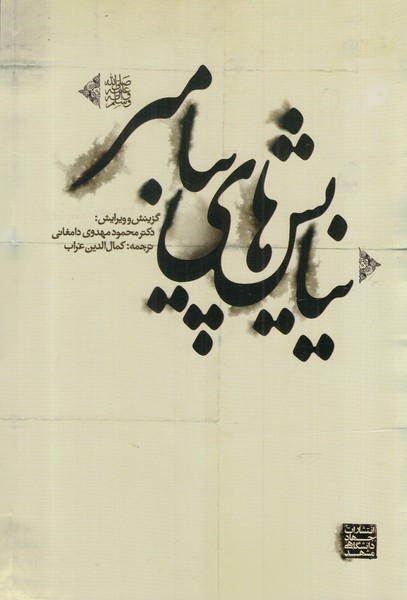 نیایش‌های پیامبر
صلی الله
علیه و آله
و سلم
گزینش و ویرایش:
دکتر محمود مهدوی دامغانی
ترجمه: کمال‌الدین غراب
انتشارات
جهاد
دانشگاهی
مشهد